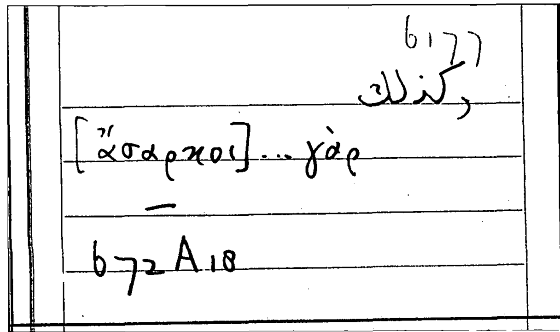 6177
وكذلك
[ἄσαρκοι]... γὰρ
—
672 A 18